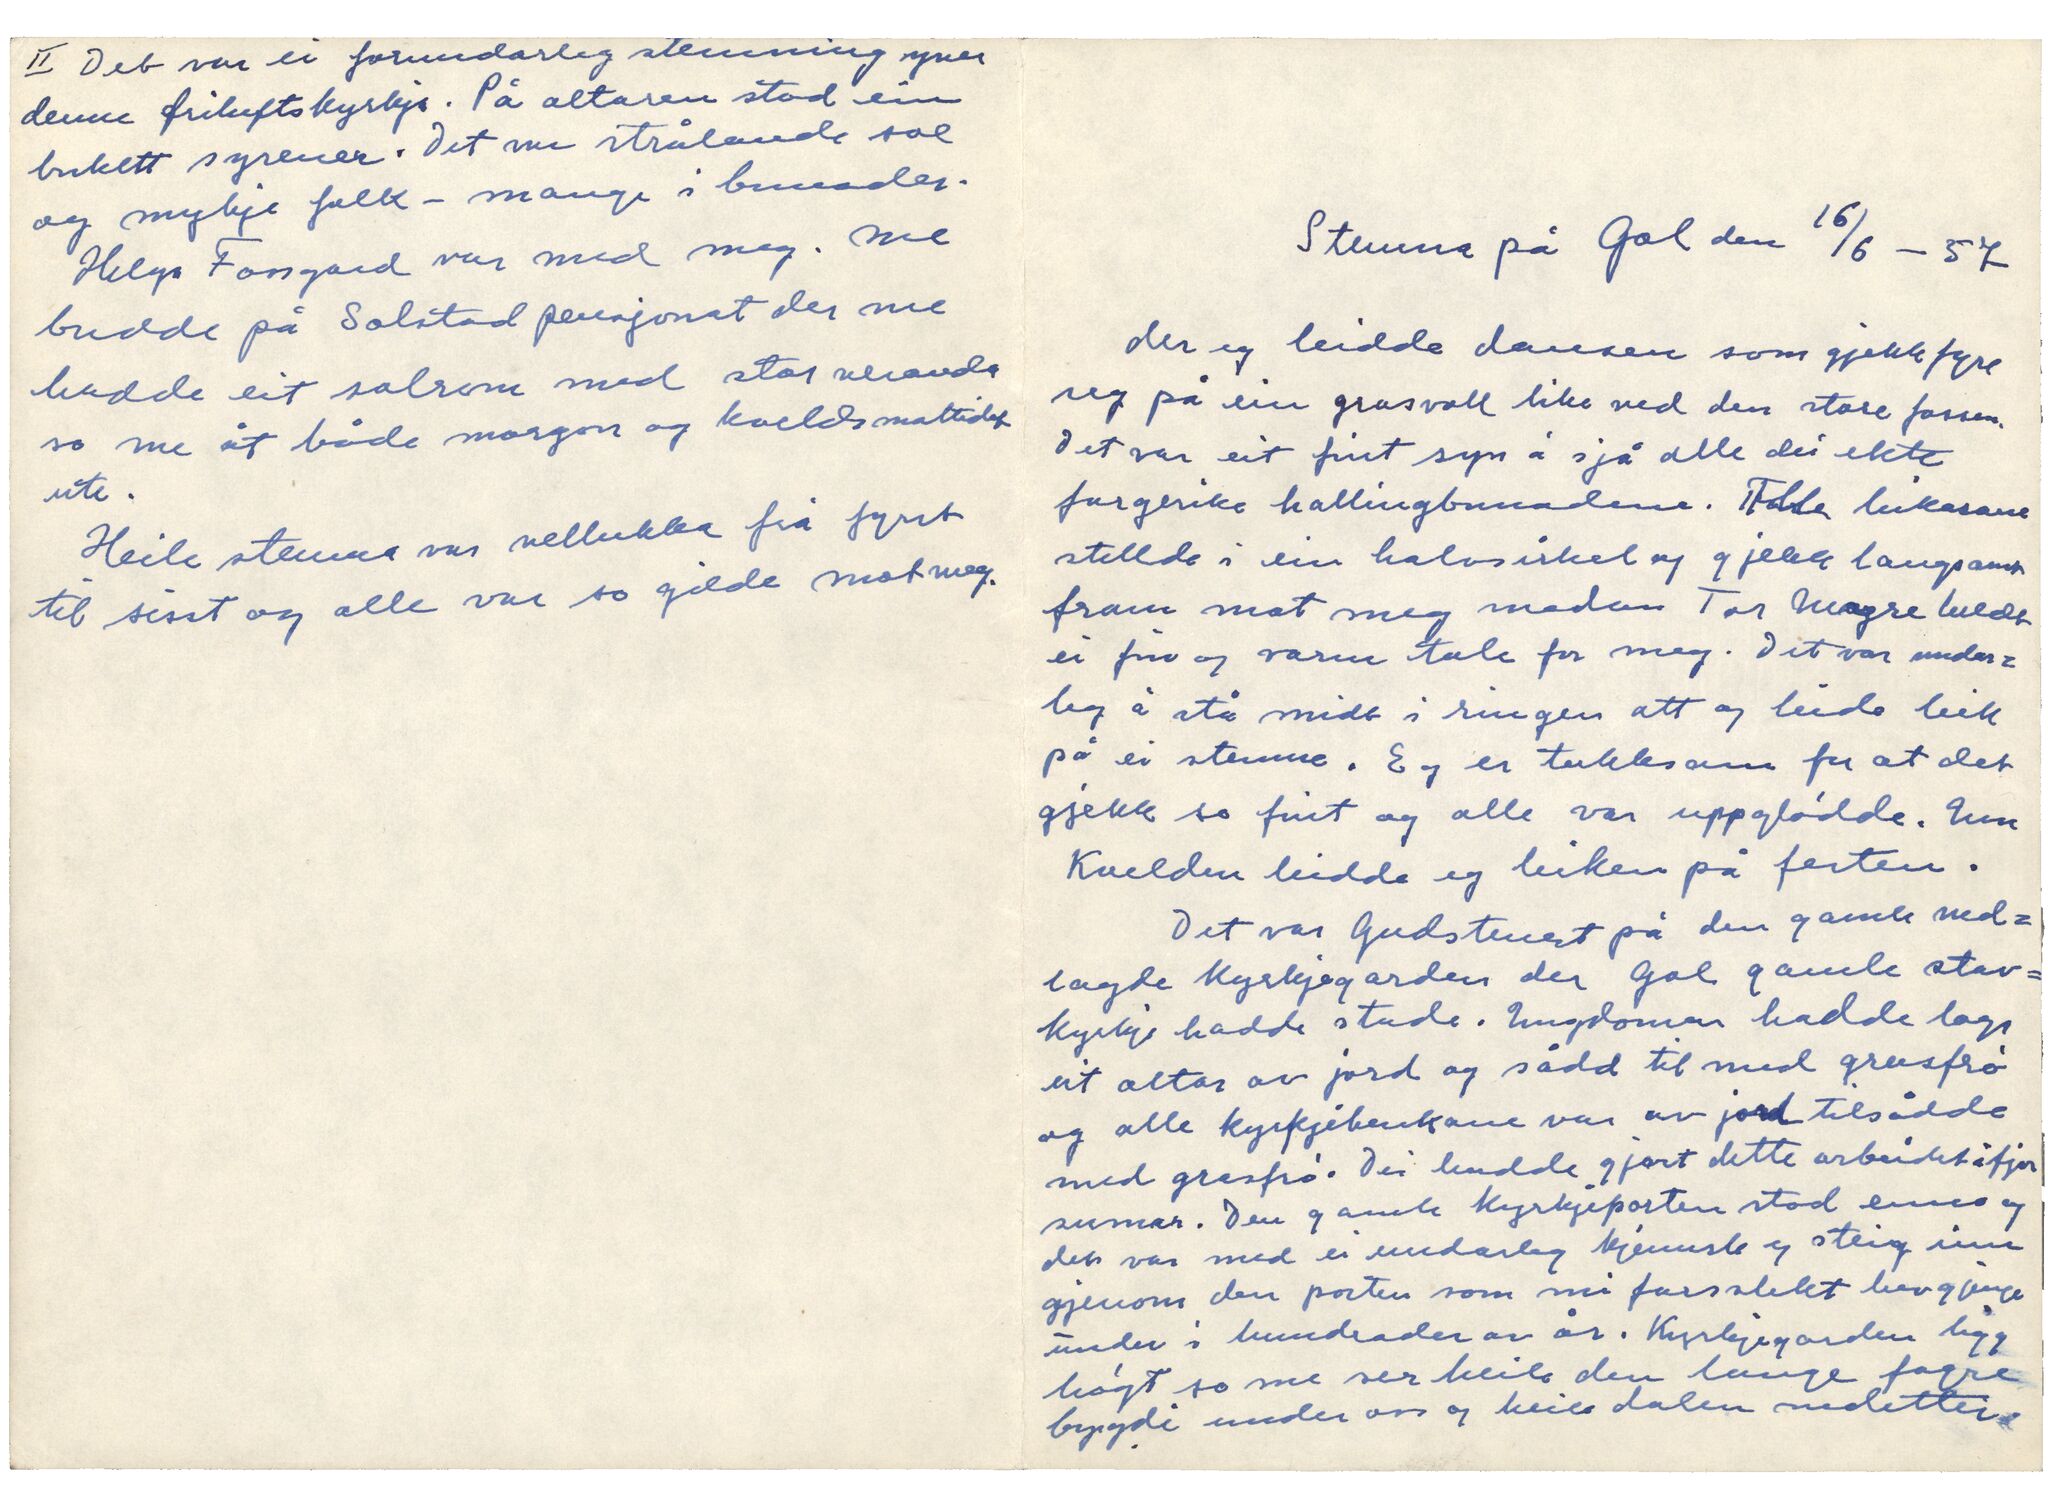 Stemna på Gol den 16/6 – 57
der eg leidde dansen som gjekk fyre
seg på ein grasvoll like ved den store fossen.
Det var eit fint syn å sjå alle dei ekte
fargerike hallingbunadene. Alle leikarane
stellde i ein halvsirkel og gjekk langsamt
fram mot meg medan Tor heldt
ei fin og varm tale for meg. Det var under=
leg å stå midt i ringen att og leide leik
på ei stemne. Eg er takksam for at det
gjekk so fint og alle var uppglødde. Um
Kvelden leidde eg leiken på festen.
Det var Gudstenest på den gamle ned=
lagde Kyrkjegarden der Gol gamle stav=
kyrkje hadde stade. Ungdomen hadde laga
eit altar av jord og sådd til med grasfrø
og alle kyrkjebenkane var av jord tilsådde
med grasfrø. Dei hadde gjort dette arbeidet ifjor
sumar. Den gamle Kyrkjeporten stod enno og
det var med ei underleg kjennsle eg steig inn
gjenom den porten som mi farsslekt hev gjenge
under i hundrader av år. Kyrkjegarden ligg
høgt so me ser heile den lange fagre
bygdi under oss og heile dalen nedetter.
II Det var ei forunderleg stemning yver
denne friluftskyrkja. På altaren stod ein
bukett syrener. Det var strålande sol
og mykje folk – mange i bunader.
Helga Fossgard var med meg. Me
budde på Solstad pensjonat der me
hadde eit solrom med stor veranda
so me åt både morgon og kveldsmåltidet
ute.
Heile stemna var vellukka frå fyrst
til sisst og alle var so gilde mot meg.